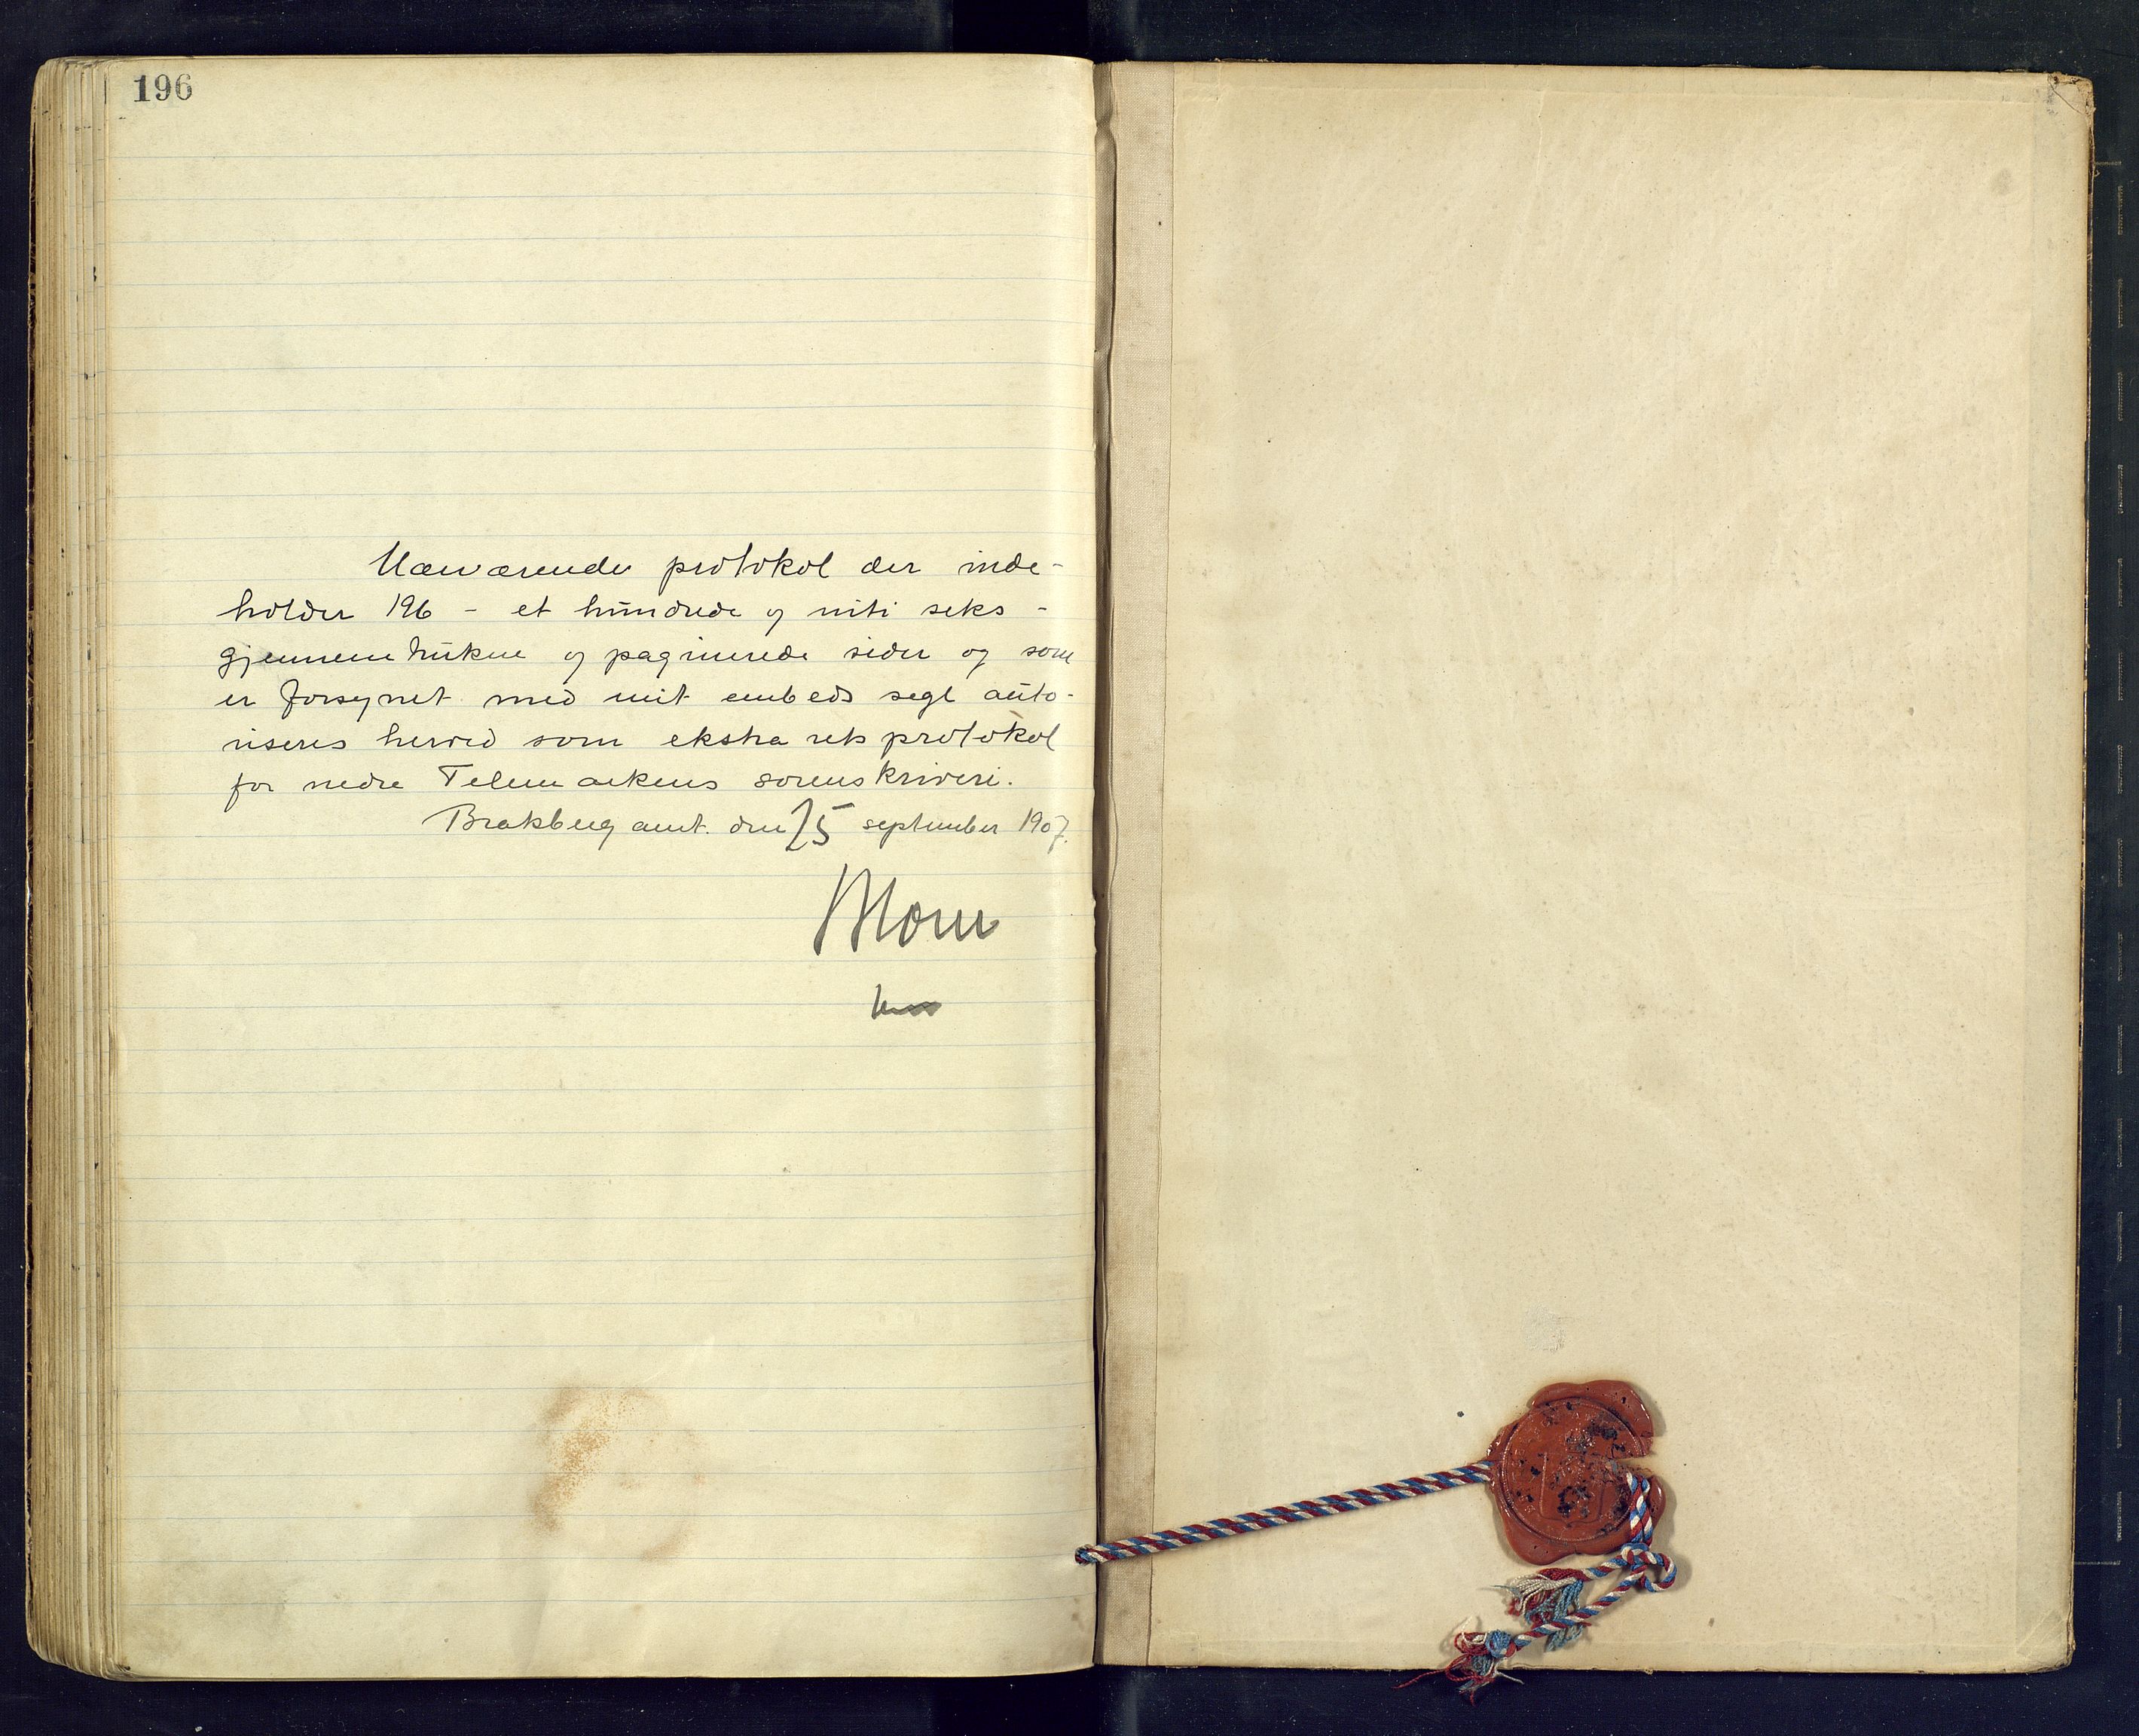 196
Nærværende protokol der inde-
holder 196 - et hundrede og niti seks -
gjennemtrukne og paginerede sider og som
er forsynet med mit embeds segl auto-
riseres herved som ekstra retsprotokol
for nedre Telemarkens sorenskriveri.
Bratsberg amt. den 25 september 1907.